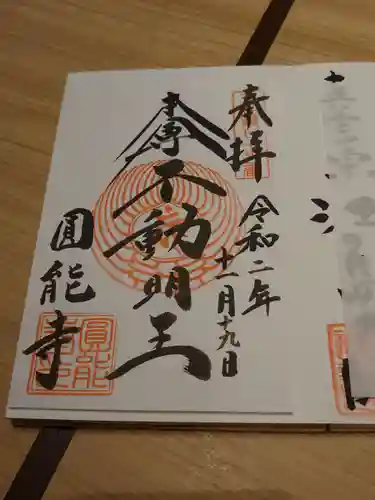 奉拝
令和二年
十一月十九日
本尊
不動明王
圓能寺